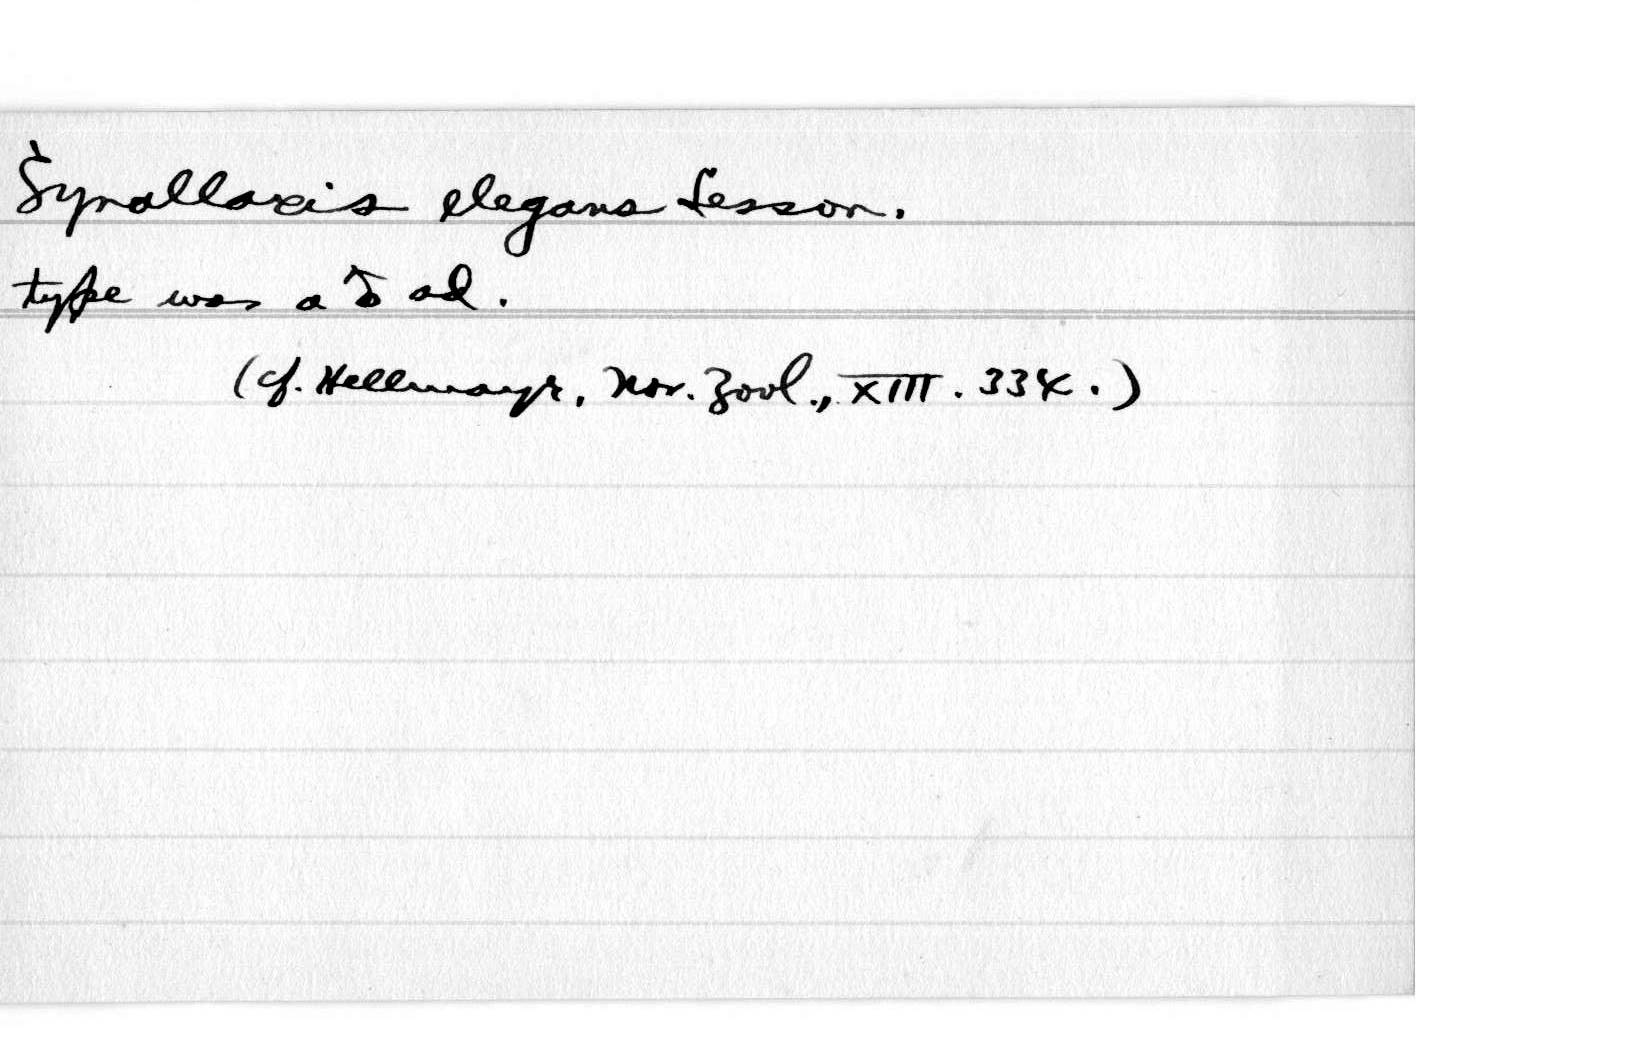 Synallaxis elegans Lesson.
type was a ♂ ad.
(cf. Hellmayr, Nov. Zool., XIII. 334.)